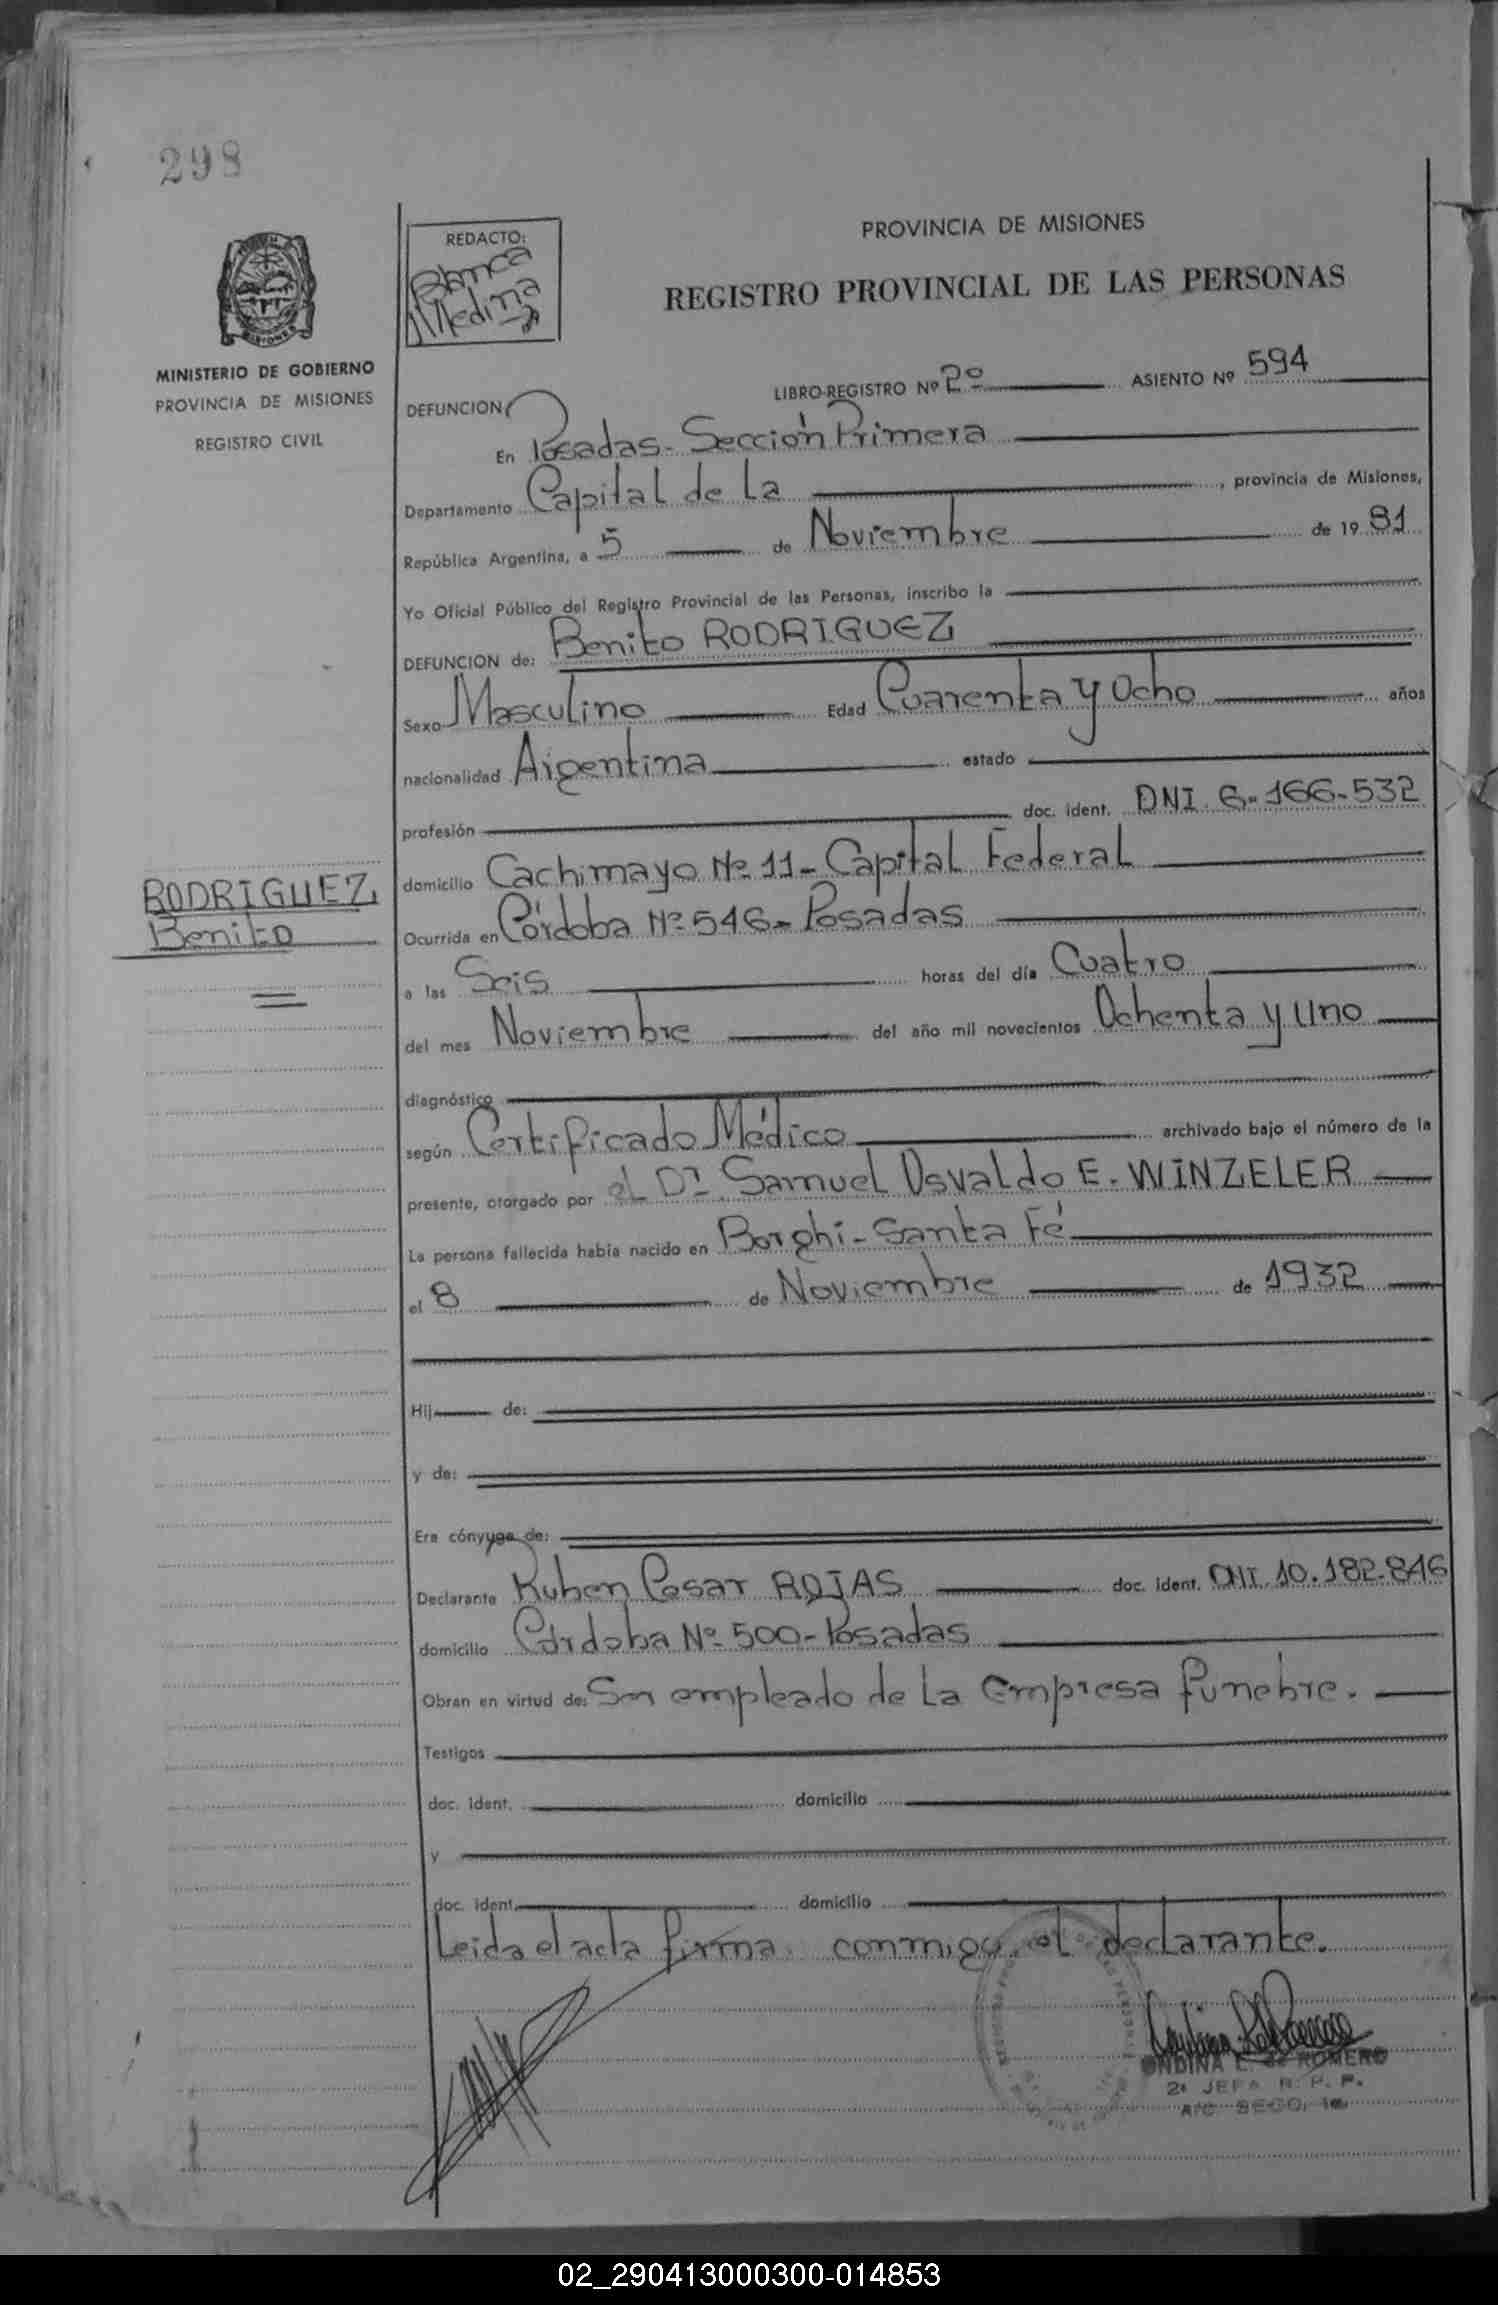 298
REDACTO:
Blanca
Medina
PROVINCIA DE MISIONES
REGISTRO PROVINCIAL DE LAS PERSONAS
MINISTERIO DE GOBIERNO
PROVINCIA DE MISIONES
REGISTRO CIVIL
LIBRO-REGISTRO Nº 2º ASIENTO Nº 594
DEFUNCION
En Posadas - Sección Primera
Departamento Capital de La, provincia de Misiones,
República Argentina, a 5 de Noviembre de 19 81
Yo Oficial Público del Registro Provincial de las Personas, inscribo la
DEFUNCION de: Benito RODRIGUEZ
Sexo Masculino Edad Cuarenta y Ocho años
nacionalidad Argentina estado
profesión doc. ident. DNI 6.166.532
RODRIGUEZ,
Benito
domicilio Cachimayo Nº 11 - Capital Federal
Ocurrida en Córdoba Nº 546 - Posadas
a las Seis horas del día Cuatro
del mes Noviembre del año mil novecientos Ochenta y Uno
diagnóstico
según Certificado Médico archivado bajo el número de la
presente, otorgado por el Dr. Samuel Osvaldo E. WINZELER
La persona fallecida había nacido en Borghi - Santa Fé
el 8 de Noviembre de 1932
Hij de:
y de:
Era cónyuge de:
Declarante Ruben Cesar ROJAS doc. ident. DNI. 10.182.846
domicilio Córdoba Nº 500 - Posadas
Obran en virtud de: Ser empleado de La Empresa fúnebre.
Testigos
doc. ident. domicilio
y
doc. ident. domicilio
Leida el acta firma conmigo el declarante.
ONDINA E. de ROMERO
2ª JEFA R. P. P.
A/C SECC. 1ª
02_290413000300-014853